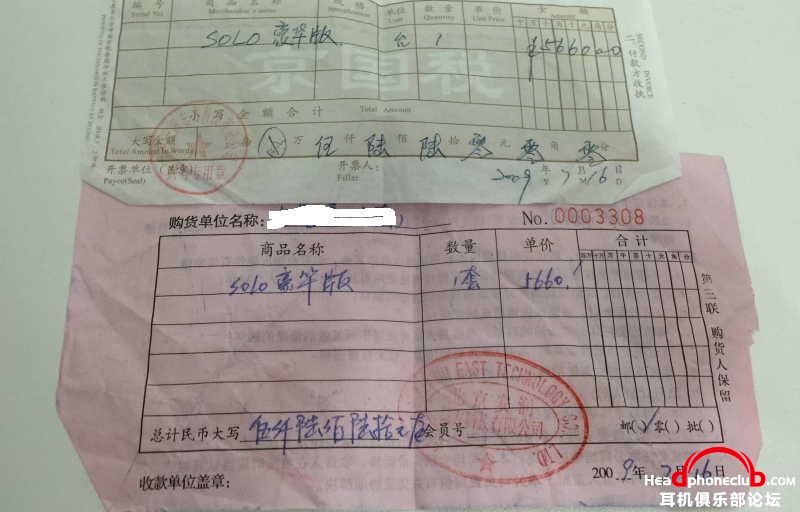 编号 商品名称 规格 单位 数量 单价 金额
Serial No. Merchandise's name Specification Unit Quantity Unit Price
SOLO 豪华版 台 1 ¥566000
二、付款方收执
SECOND INVOICE
京国税
小写金额合计 Total Amount
大写金额
Total Amount In Words
万 伍 仟 陆 佰 陆 拾 零 元 零 角 零 分
开票单位(盖章) 开票人: 2009 年 7 月 16 日
Payee(Seal) Filler Y M D
购货单位名称: No. 0003308
商品名称 数量 单价 合计
百万 十万 万 千 百 十 元 角 分
SOLO 豪华版 1套 5660.
第三联 购货人保留
EAST TECHNOLOGY
有限公司
LTD
总计民币大写 伍仟陆佰陆拾元整 会员号 邮(√) 零( ) 批( )
收款单位盖章: 2009年7月16日
Headphoneclub.com
耳机俱乐部论坛